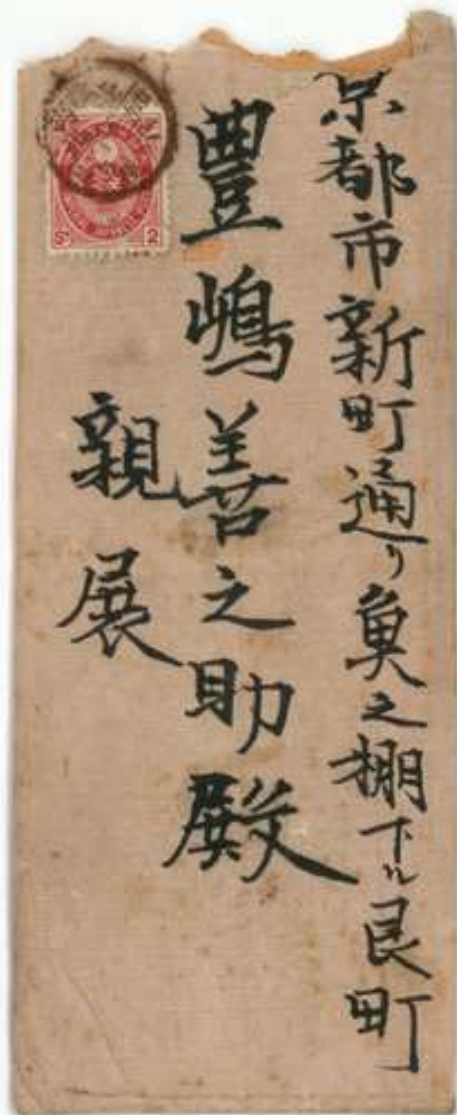 京都市新町通り魚之棚下ル艮町
豊嶋善之助殿
親展
2